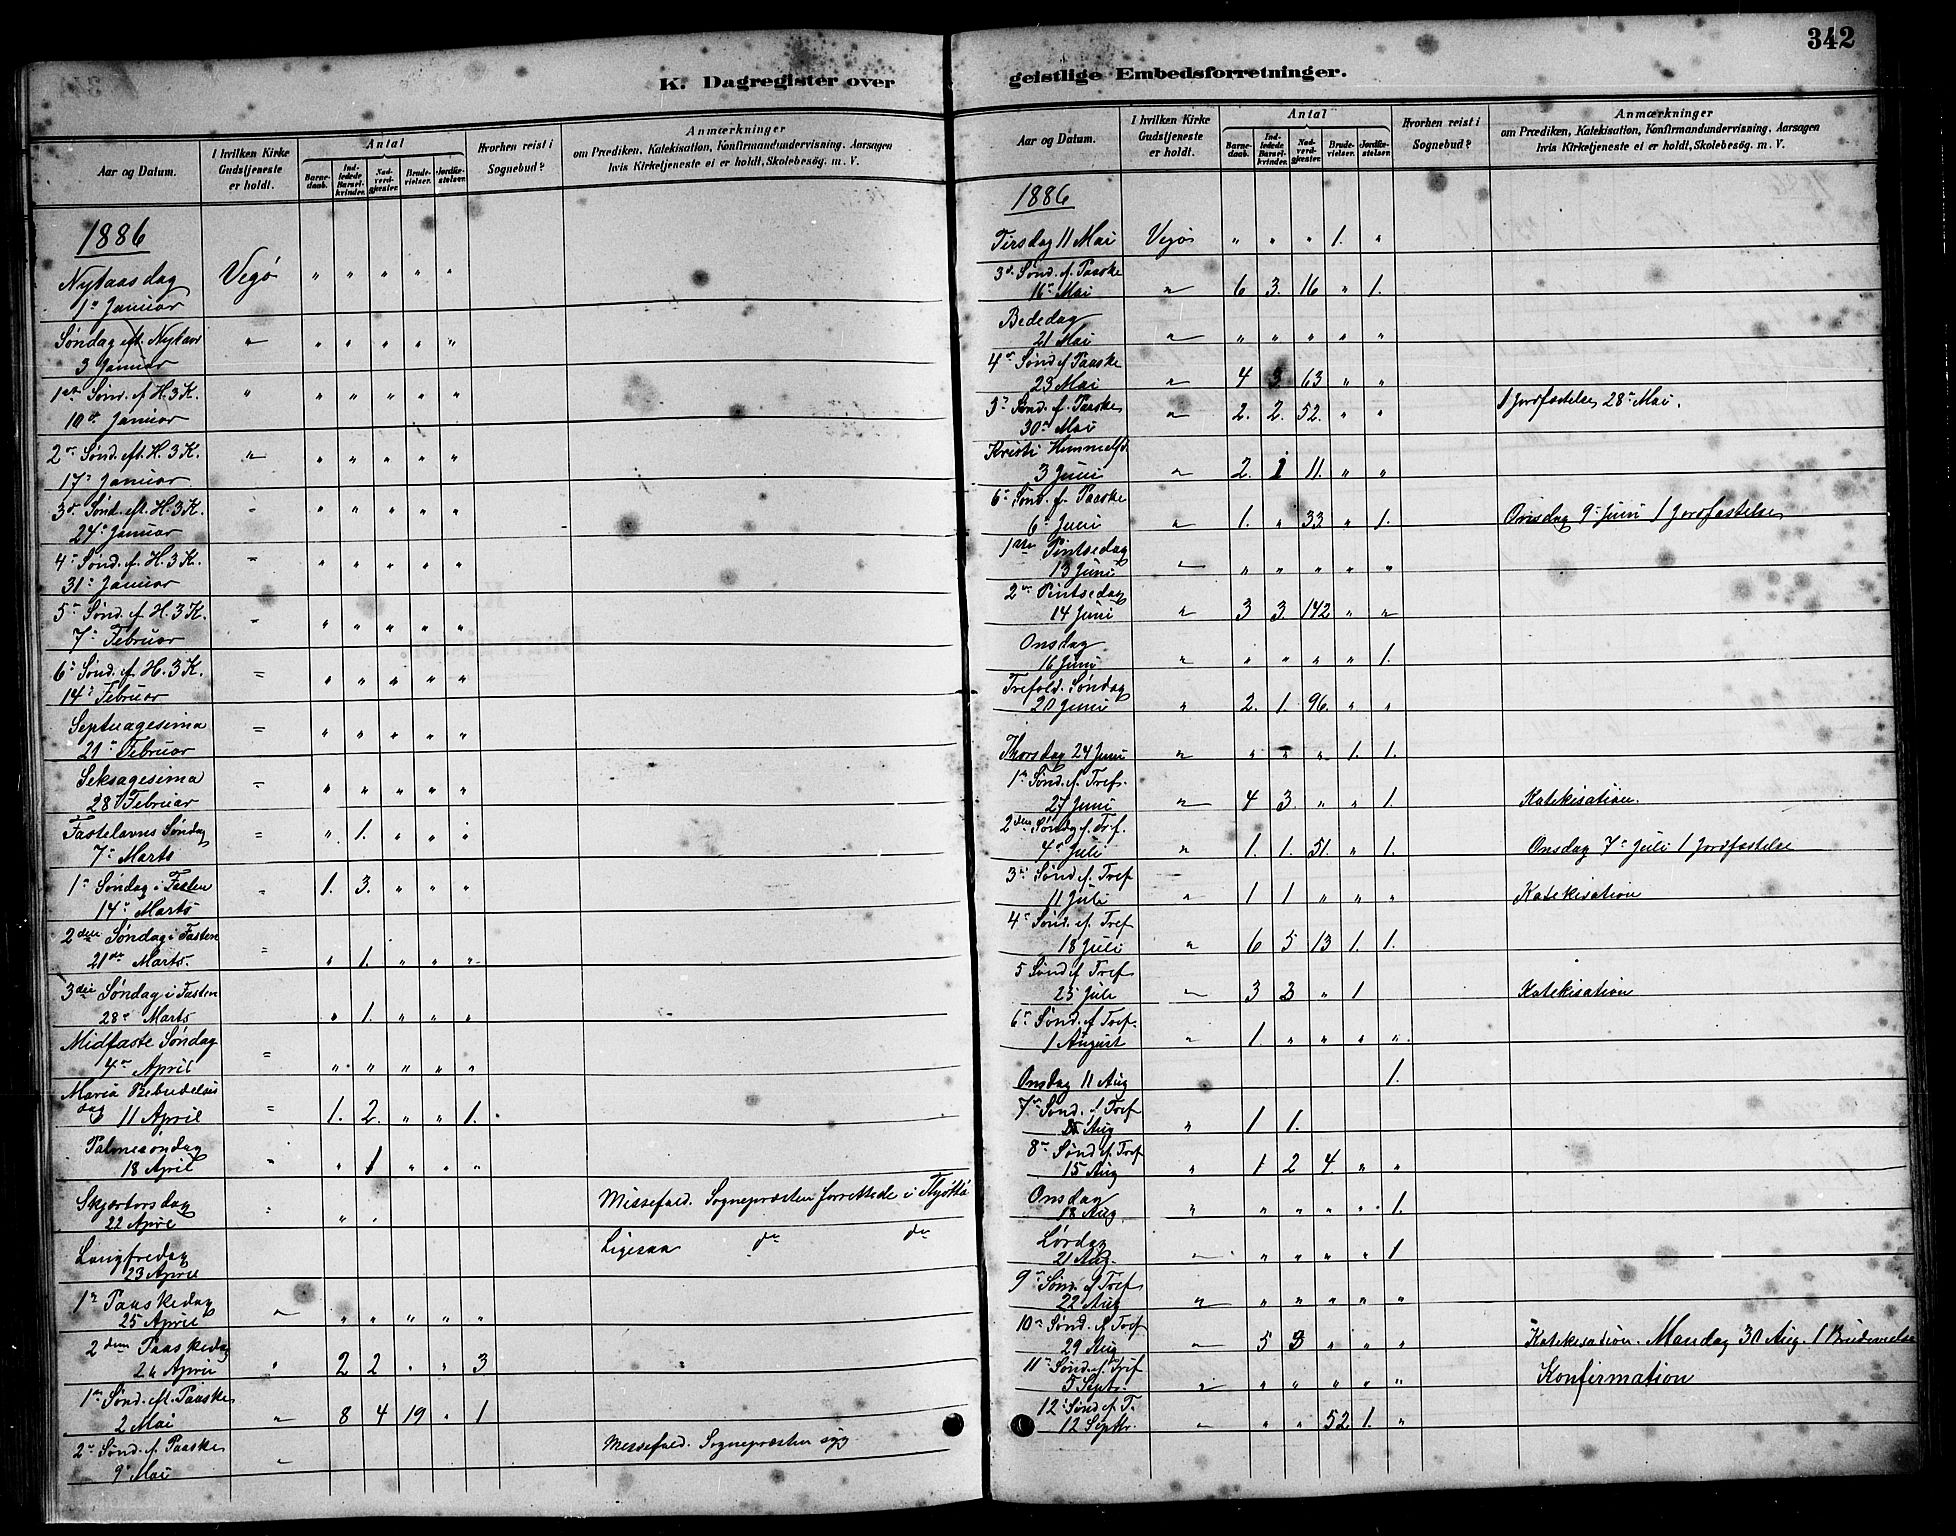 342
K. Dagregister over geistlige Embedsforretninger.
Aar og Datum. | I hvilken Kirke Gudstjeneste er holdt. | Antal | Barnedaab. | Indledede Barselkvinder. | Nadverdgjæster. | Brudevielser. | Jordfæstelser. | Hvorhen reist i Sognebud? | Anmærkninger om Prædiken, Katekisation, Konfirmandundervisning, Aarsagen hvis Kirketjeneste ei er holdt, Skolebesøg. m. V.
1886
Nytaarsdag 1ste Januar | Vegø | " | " | " | " | "
Søndag eft. Nytaar 3 Januar | " | " | " | " | " | "
1ste Sønd. ef. H. 3 K. 10de Januar | " | " | " | " | " | "
2den Sønd. eft. H. 3 K. 17de Januar | " | " | " | " | " | "
3die Sønd. eft. H. 3 K. 24de Januar | " | " | " | " | " | "
4de Sønd. ef. H. 3 K. 31te Januar | " | " | " | " | " | "
5te Sønd. ef. H. 3 K. 7de Februar | " | " | " | " | " | "
6te Sønd. ef. H. 3 K. 14de Februar | " | " | " | " | " | "
Septuagesima 21de Februar | " | " | " | " | " | "
Seksagesima 28de Februar | " | " | " | " | " | "
Fastelavns Søndag 7de Marts | " | " | 1. | " | " | "
1ste Søndag i Fasten 14de Marts | " | 1. | 3. | " | " | "
2den Søndag i Fasten 21de Marts. | " | " | 1. | " | " | "
3die Søndag i Fasten 28de Marts | " | 1. | " | " | "
Midfaste Søndag 4de April | " | " | " | " | " | "
Maria Bebudelses dag 11 April | " | 1. | 2. | " | " | 1.
Palmesøndag 18 April | " | " | 1 | " | " | "
Skjærtorsdag 22 April | " | " | " | Messefald. Sognepræsten forrettede i Tjøttø
Langfredag 23 April | Ligesaa do do
1ste Paaskedag 25 April | " | " | " | " | " | "
2den Paaskedag 26 April | " | 2 | 2 | " | " | 3
1ste Sønd. eft. Paaske 2 Mai | " | 8 | 4 | 19 | " | 1
2den Sønd. ef. Paaske 9de Mai | " | Messefald. Sognepræsten syg
Aar og Datum. | I hvilken Kirke Gudstjeneste er holdt. | Antal | Barnedaab. | Indledede Barselkvinder. | Nadverdgjæster. | Brudevielser. | Jordfæstelser. | Hvorhen reist i Sognebud? | Anmærkninger om Prædiken, Katekisation, Konfirmandundervisning, Aarsagen hvis Kirketjeneste ei er holdt, Skolebesøg. m. V.
1886
Tirsdag 11 Mai | Vegø | " | " | " | 1. | "
3die Sønd. ef. Paaske 16de Mai | " | 6 | 3. | 16 | " | 1.
Bededag 21 Mai | " | " | " | " | " | "
4de Sønd ef Paaske 23 Mai | " | 4 | 3 | 63 | " | "
5te Sønd. ef. Paaske 30te Mai | " | 2. | 2. | 52. | " | " | 1 Jordfæstelse 28de Mai.
Kristi Himmelfd. 3 Juni | " | 2. | 1 | 11. | " | "
6te Sønd. ef. Paaske 6te Juni | " | 1. | " | 33 | " | 1. | Onsdag 9de Juni 1 Jordfæstelse
1ste Pintsedag 13 Juni | " | " | " | " | " | "
2den Pintsedag 14 Juni | " | 3 | 3. | 142 | " | "
Onsdag 16 Juni | " | " | " | " | " | 1.
Trefold. Søndag 20 Juni | " | 2. | 1. | 96. | " | "
Thorsdag 24 Juni | " | " | " | " | 1. | 1.
1ste Sønd. ef. Tref. 27 Juni | " | 4 | 3. | " | " | 1. | Katekisation.
2den Søndg ef. Tref. 4de Juli | " | 1. | 1. | 51. | " | 1. | Onsdag 7de Juli 1 Jordfæstelse
3die Sønd ef. Tref 11 Juli | " | 1 | 1 | " | " | " | Katekisation
4de Sønd. ef. Tref 18 Juli | " | 6 | 5 | 13 | 1. | 1.
5 Sønd ef Tref 25 Juli | " | 3 | 3 | " | 1 | Katekisation
6te Sønd. ef Tref. 1 August | " | 1. | " | " | " | "
Onsdag 11 Aug | 1.
7de Sønd. ef Tref Aug | " | 1 | 1.
8de Sønd ef. Tref 15 Aug | " | 1 | 2 | 4. | " | "
Onsdag 18 Aug | " | " | " | " | " | 1.
Lørdag 21 Aug. | " | " | " | " | " | 1
9de Sønd. ef Tref 22 Aug | " | " | " | " | " | "
10de Sønd. ef Tref 29 Aug | " | 5 | 3 | " | " | " | Katekisation. Mandag 30 Aug. 1 Brudevielse
11te Sønd. ef. Tref 5 Septbr. | " | " | " | " | " | " | Konfirmation
12te Sønd ef. T. 12 Septbr. | " | " | " | 52 | 1. | "